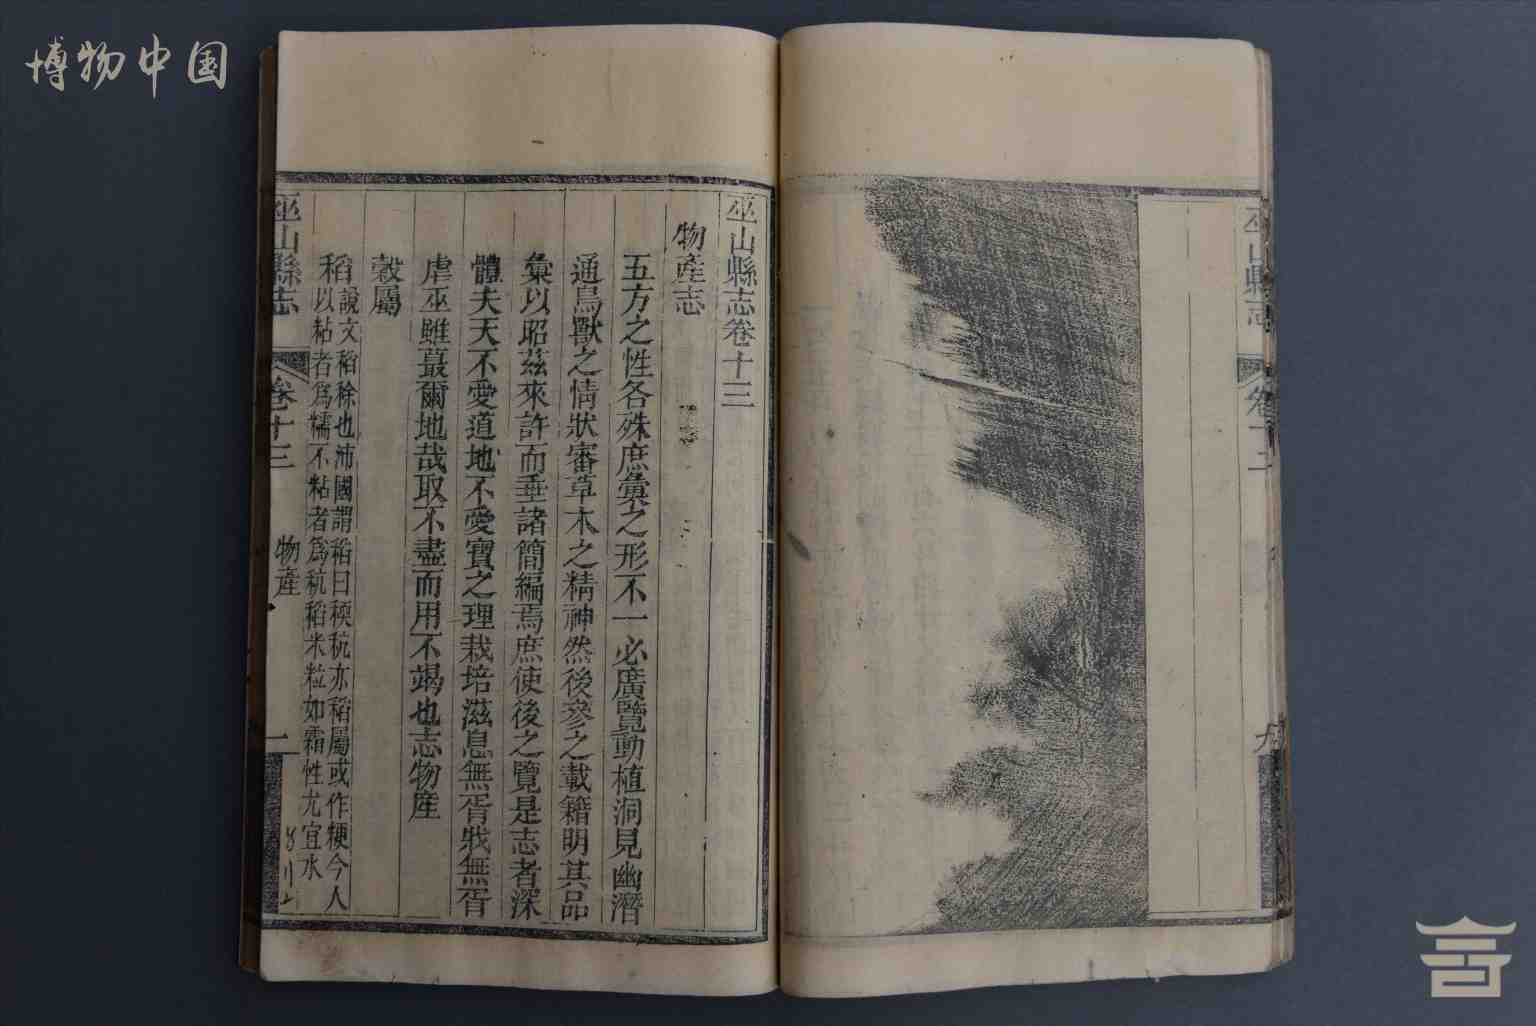 博物中国
巫山縣志
巫山縣志卷十三
物產志
五方之性各殊庶彙之形不一必廣覽動植洞見幽潛
通鳥獸之情狀審草木之精神然後參之載籍明其品
彙以昭茲來許而垂諸簡編焉庶使後之覽是志者深
體夫天不愛道地不愛寶之理栽培滋息無胥戕無胥
虐巫雖蕞爾地哉取不盡而用不竭也志物產
穀屬
稻說文稻稌也沛國謂稻曰稬秔亦稻屬或作粳今人
以粘者為糯不粘者為秔稻米粒如霜性尤宜水
巫山縣志 卷十三 物產 一